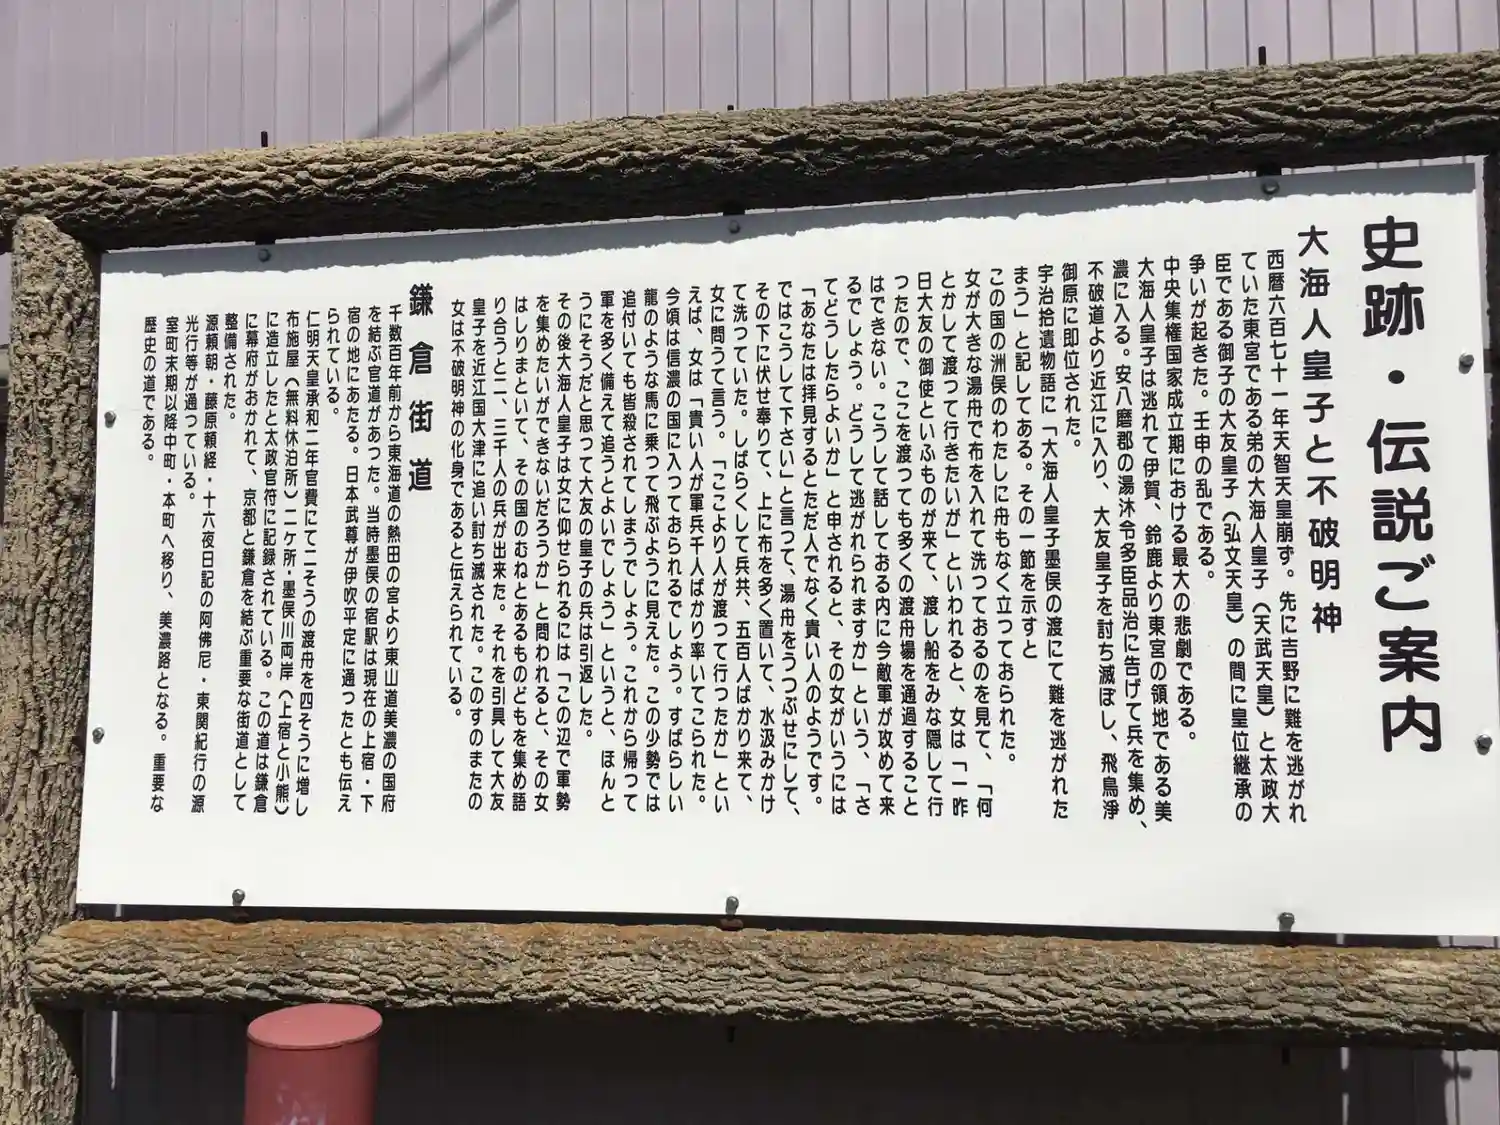 史跡・伝説ご案内
大海人皇子と不破明神
西暦六百七十一年天智天皇崩ず。先に吉野に難を逃がれ
ていた東宮である弟の大海人皇子（天武天皇）と太政大
臣である御子の大友皇子（弘文天皇）の間に皇位継承の
争いが起きた。壬申の乱である。
中央集権国家成立期における最大の悲劇である。
大海人皇子は逃れて伊賀、鈴鹿より東宮の領地である美
濃に入る。安八磨郡の湯沐令多臣品治に告げて兵を集め、
不破道より近江に入り、大友皇子を討ち滅ぼし、飛鳥淨
御原に即位された。
宇治拾遺物語に「大海人皇子墨俣の渡にて難を逃がれた
まう」と記してある。その一節を示すと
この国の洲俣のわたしに舟もなく立っておられた。
女が大きな湯舟で布を入れて洗っておるのを見て、「何
とかして渡って行きたいが」といわれると、女は「一昨
日大友の御使といふものが来て、渡し船をみな隠して行
ったので、ここを渡っても多くの渡舟場を通過すること
はできない。こうして話しておる内に今敵軍が攻めて来
るでしょう。どうして逃がれられますか」という、「さ
てどうしたらよいか」と申されると、その女がいうには
「あなたは拝見するとただ人でなく貴い人のようです。
ではこうして下さい」と言って、湯舟をうつぶせにして、
その下に伏せ奉りて、上に布を多く置いて、水汲みかけ
て洗っていた。しばらくして兵共、五百人ばかり来て、
女に問うて言う。「ここより人が渡って行ったか」とい
えば、女は「貴い人が軍兵千人ばかり率いてこられた。
今頃は信濃の国に入っておられるでしょう。すばらしい
龍のような馬に乗って飛ぶように見えた。この少勢では
追付いても皆殺されてしまうでしょう。これから帰って
軍を多く備えて追うとよいでしょう」というと、ほんと
うにそうだと思って大友の皇子の兵は引返した。
その後大海人皇子は女に仰せられるには「この辺で軍勢
を集めたいができないだろうか」と問われると、その女
はしりまといて、その国のむねとあるものどもを集め語
り合うと二、三千人の兵が出来た。それを引具して大友
皇子を近江国大津に追い討ち滅された。このすのまたの
女は不破明神の化身であると伝えられている。
鎌倉街道
千数百年前から東海道の熱田の宮より東山道美濃の国府
を結ぶ官道があった。当時墨俣の宿駅は現在の上宿・下
宿の地にあたる。日本武尊が伊吹平定に通ったとも伝え
られている。
仁明天皇承和二年官費にて二そうの渡舟を四そうに増し
布施屋（無料休泊所）二ケ所・墨俣川両岸（上宿と小熊）
に造立したと太政官符に記録されている。この道は鎌倉
に幕府がおかれて、京都と鎌倉を結ぶ重要な街道として
整備された。
源頼朝・藤原頼経・十六夜日記の阿佛尼・東関紀行の源
光行等が通っている。
室町末期以降中町・本町へ移り、美濃路となる。重要な
歴史の道である。